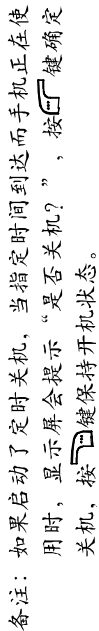 备注：如果启动了定时关机，当指定时间到达而手机正在使
用时，显示屏会提示“是否关机？”，按键确定
关机，按键保持开机状态。